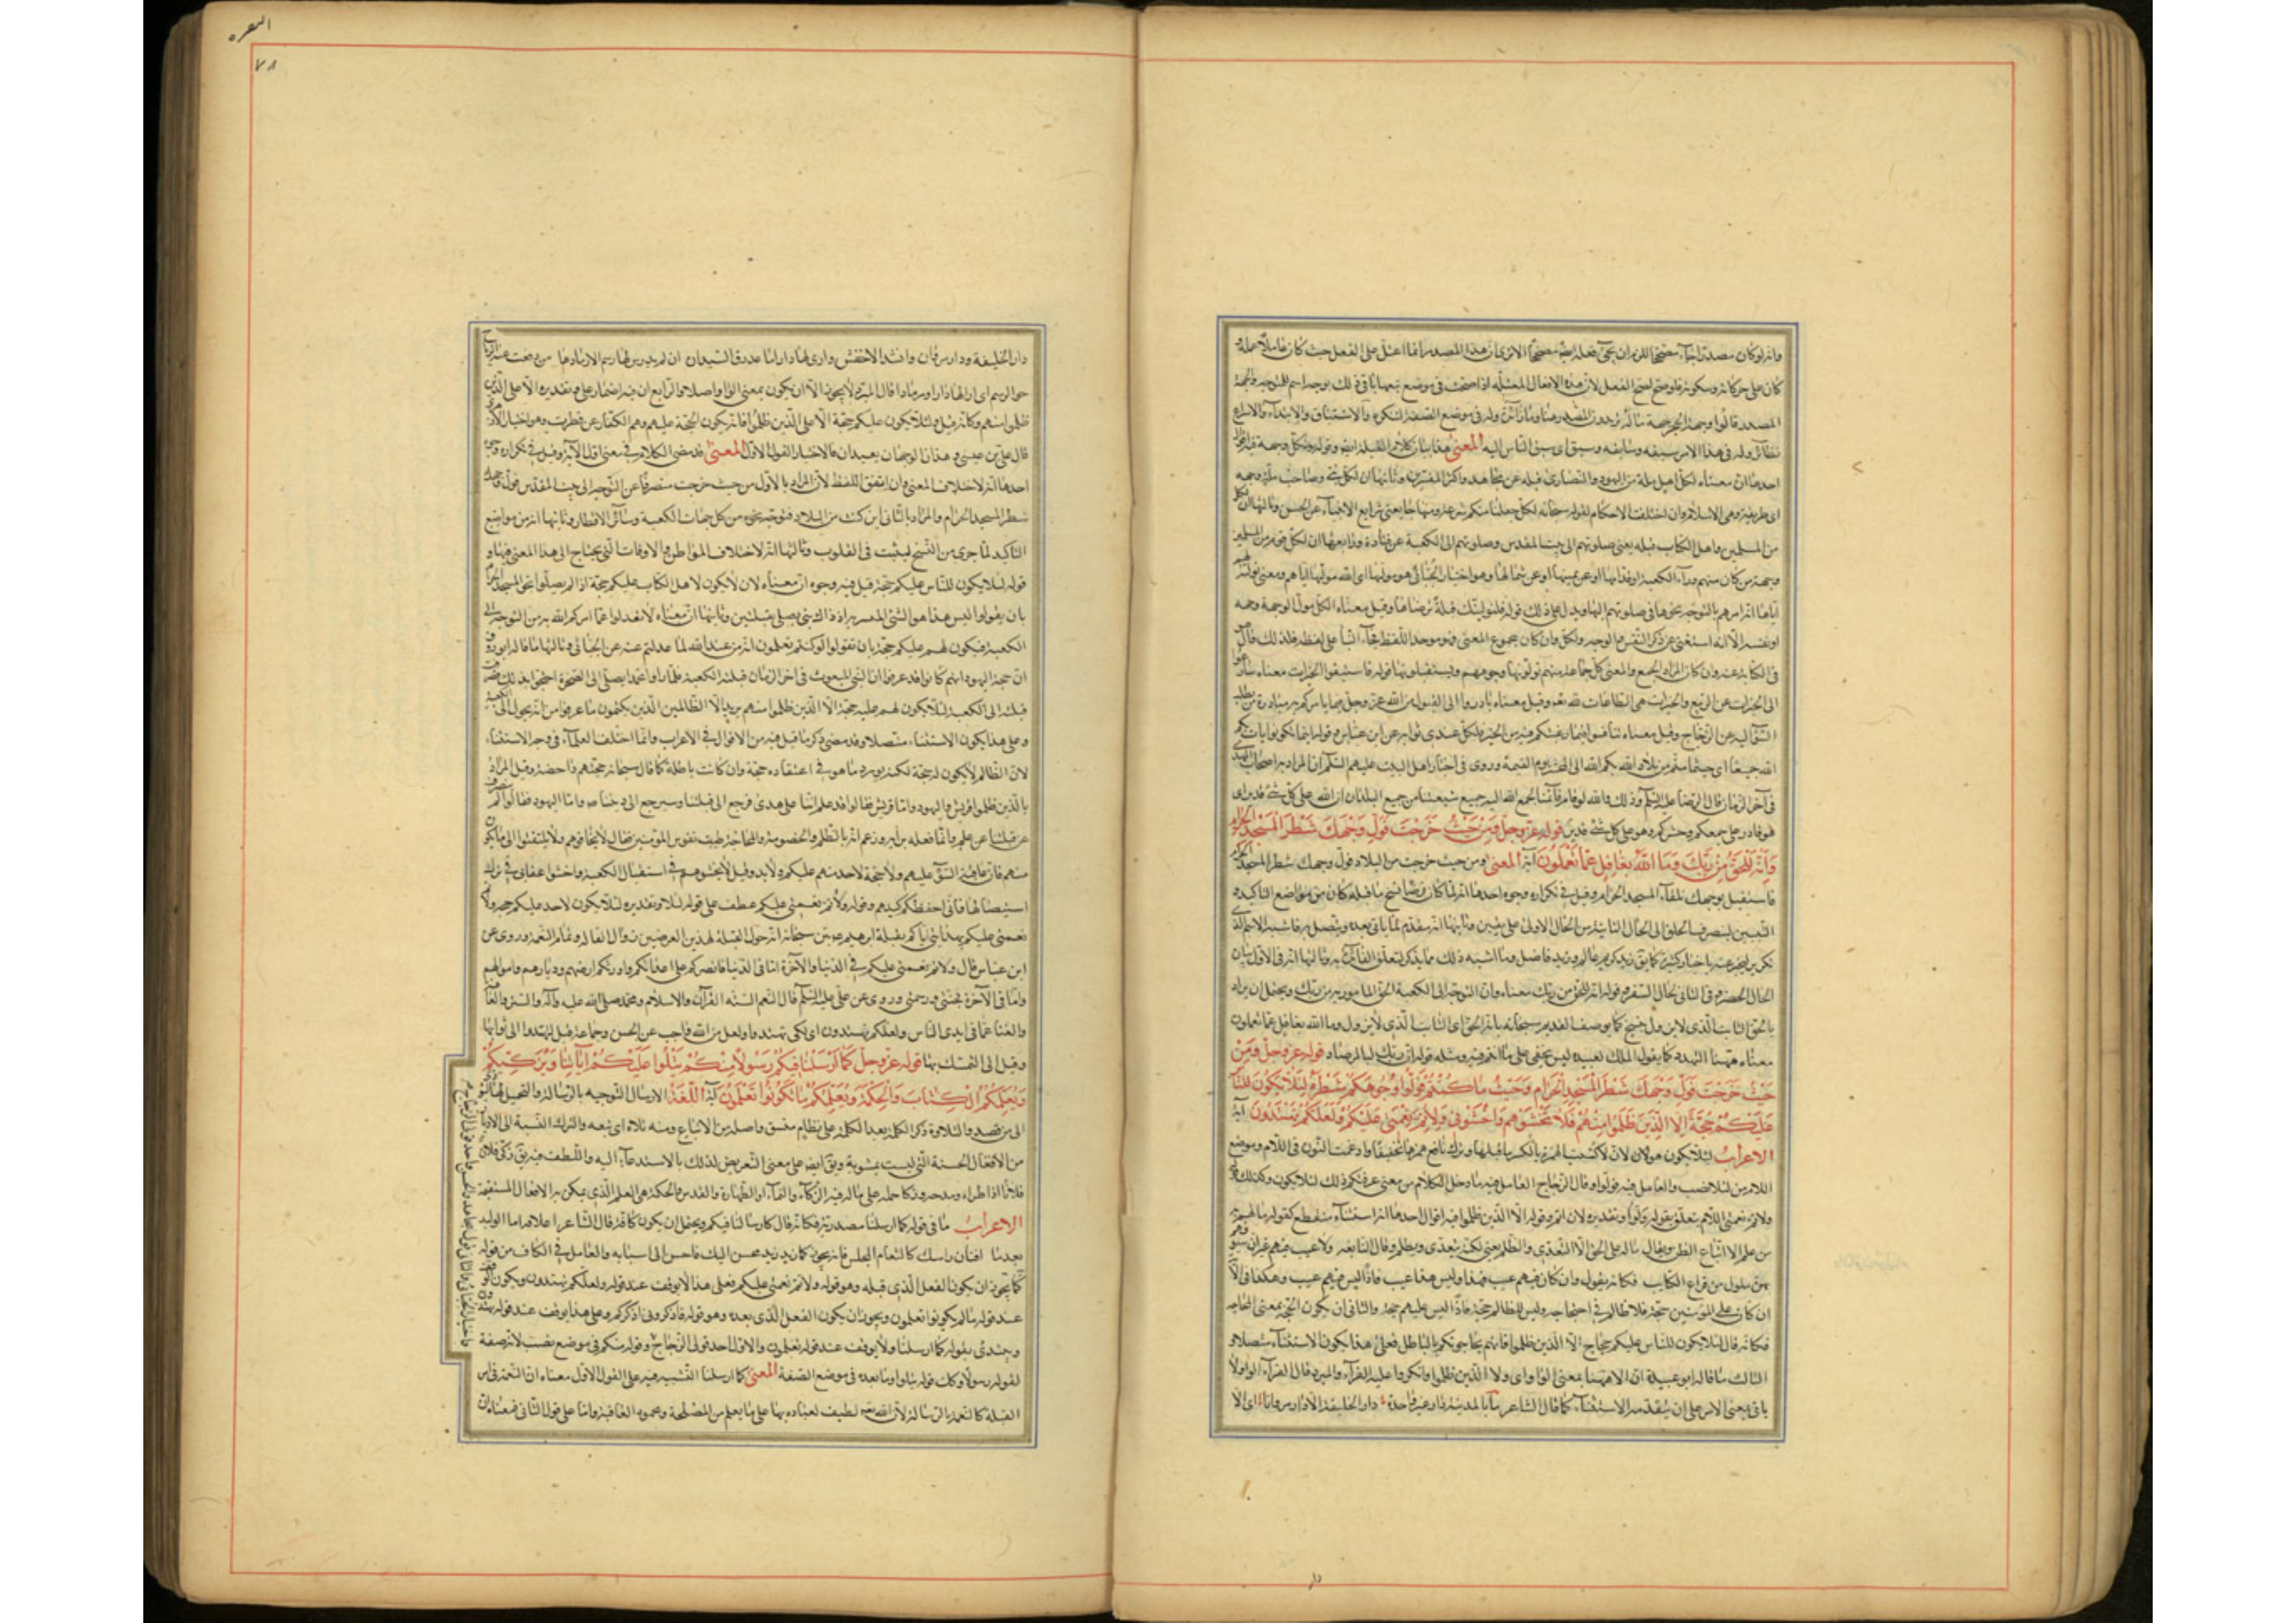 وانه لو كان مصدرا جاء مصححا للزم ان يجئ فعله ايضا مصححا الا ترى ان هذا المصدر انما اعتل على الفعل حيث كان عاملا عمله و
كان على حركاته وسكونه فلو صح لصح الفعل لان هذه الافعال المعتلة اذا صحت في موضع تبعها باقي ذلك بوجه اسم للتوجه والجهة
المصدر قالوا وجه الحجر جهة ماله
المعنى هذا بيان لامر القبلة ايضا وقوله ولكل وجهة فيه اقوال
احدها ان معناه لكل اهل ملة من اليهود والنصارى قبلة عن مجاهد واكثر المفسرين وثانيها ان لكل نبي وصاحب ملة وجهة
اى طريقة وهى الاسلام وان اختلف الاحكام لقوله سبحانه لكل جعلنا منكم شرعة ومنهاجا يعنى شرايع الانبياء عن الحسن وثالثها ان لكل
من المسلمين واهل الكتاب قبلة يعنى صلوتهم الى بيت المقدس وصلوتهم الى الكعبة عن قتادة ورابعها ان لكل قوم من المسلمين
وجهة من كان منهم وراء الكعبة او قدامها او عن يمينها او عن شمالها وهو اختيار الجبائى هو موليها اى الله موليها اياهم ومعنى توليته
اياها انه امرهم بالتوجه نحوها في صلوتهم اليها ويدل على ذلك قوله فلنولينك قبلة ترضاها وقيل معناه لكل مولى الوجهة وجهه
او نفسه الا انه استغنى عن ذكر النفس والوجه وكل وان كان مجموع المعنى فهو موحد اللفظ فجاء البناء على لفظه فلذلك قال هو
في الكناية عنه وان كان المراد الجمع والمعنى كل جماعة منهم يولونها وجوههم ويستقبلونها قوله فاستبقوا الخيرات معناه سارعوا
الى الخيرات عن الربيع والخيرات هى الطاعات لله تعالى وقيل معناه بادروا الى القبول من الله عز وجل فيما يامركم به مبادرة من يطلب
السبق اليه عن الزجاج وقيل معناه تنافسوا فيما رغبتكم فيه من الخير فلكل عندى ثوابه عن ابن عباس وقوله اينما تكونوا يات بكم
الله جميعا اى حيثما متم من بلاد الله يات بكم الله الى المحشر يوم القيمة وروى في اخبار اهل البيت عليهم السلام ان المراد به اصحاب المهدى
في آخر الزمان قال الرضا عليه السلم وذلك والله لو قام قائمنا لجمع الله اليه جميع شيعتنا من جميع البلدان ان الله على كل شئ قدير اى
هو قادر على جمعكم وحشركم وهو على كل شئ قدير قوله عز وجل ومن حيث خرجت فول وجهك شطر المسجد الحرام
وانه للحق من ربك وما الله بغافل عما تعملون آية المعنى ومن حيث خرجت من البلاد فول وجهك شطر المسجد الحرام
فاستقبل بوجهك تلقاء المسجد الحرام وقيل في تكراره وجوه احدها انه لما كان فرضا نسخ ما قبله كان من مواضع التاكيد و
التبيين لينصرف الخلق الى الحال الثانية من الحال الاولى على يقين وثانيها انه مقدم لما ياتى بعده ويتصل به فاشبه الاسم الذى
تكرر ليخبر عنه باخبار كثيرة كما يق زيد كريم زيد عالم وزيد فاضل وما اشبه ذلك مما يذكر لتعلق الفائدة به وثالثها انه في الاول بيان
الحال الحضر وفي الثانى لحال السفر وقوله انه للحق من ربك معناه وان التوجه الى الكعبة الحق المامور به من ربك ويحتمل ان يراد
بالحق الثابت الذى لا يزول بنسخ كما يوصف القديم سبحانه بانه الحق اى الثابت الذى لا يزول وما الله بغافل عما تعملون
معناه هيهنا التهديد كما يقول الملك لعبيده ليس يخفى على ما انتم فيه ومثله قوله ان ربك لبالمرصاد قوله عز وجل ومن
حيث خرجت فول وجهك شطر المسجد الحرام وحيث ما كنتم فولوا وجوهكم شطره لئلا يكون للناس
عليكم حجة الا الذين ظلموا منهم فلا تخشوهم واخشونى ولاتم نعمتى عليكم ولعلكم تهتدون آية
الاعراب لئلا يكون هو لان لا كتبت الهمزة بالكسر ما قبلها وترك نافع همزها تخفيفا وادغمت النون في اللام وموضع
اللام من لئلا نصب والعامل فيه فولوا وقال الزجاج العامل فيه ما دخل الكلام من معنى عرفتكم ذلك لئلا يكون وكذلك
ولاتم نعمتى اللام يتعلق بقوله فولوا وتقديره لان اتم وقوله الا الذين ظلموا فيه اقوال احدها انه استثناء منقطع كقوله ما لهم به
من علم الا اتباع الظن ويقال ماله على الحق الا التعدى والظلم يعنى لكنه يتعدى ويظلم وقال النابغة ولا عيب فيهم غير ان سيوفهم
بهن فلول من قراع الكتايب فكانه يقول وان كان فيهم عيب فهذا وليس هذا عيب فاذا ليس فيهم عيب وهكذا في الآية
ان كان على المؤمنين حجة فللظالم في احتجاجه وليس للظالم حجة فاذا ليس عليهم حجة والثانى ان يكون الحجة بمعنى المحاجه
فكانه قال لئلا يكون للناس عليكم حجاج الا الذين ظلموا فانهم يحاجونكم بالباطل فعلى هذا يكون الاستثناء متصلا و
الثالث ما قاله ابو عبيدة ان الا هيهنا بمعنى الواو اى ولا الذين ظلموا وانكروا عليه الفراء والمبرد قال الفراء الواو لا
ياتى بمعنى الا من على ان يتقدمه الاستثناء كما قال الشاعر ما بالمدينة دار غير واحدة دار الخليفة الا دار مروانا اى الا
دار
البقره
٧٨
دار الخليفة ودار مروان وانشد الاخفش وارى لها دارا باغدرة السيدان لم يدرس لها رسم الا رمادا هامدا دفعت عنه الرياح
خوالد سحم اى ارى لها دارا ورمادا قال المبرد لا يجوز الا ان يكون بمعنى الواو اصلا والرابع ان فيه اضمار على وتقديره الا على الذين
ظلموا منهم وكانه قيل لئلا يكون عليكم حجة الا على الذين ظلموا فانه يكون الحجة عليهم وهم الكفار عن قطرب وهو اختيار الازهرى
قال على بن عيسى وهذان الوجهان بعيدان والاختيار القول الاول المعنى قد مضى الكلام في معنى اول الآية وقيل في تكراره وجوه
احدها انه لاختلاف المعنى وان اتفق اللفظ لان المراد بالاول من حيث خرجت منصرفا عن التوجه الى بيت المقدس فول وجهك
شطر المسجد الحرام والمراد بالثانى اين كنت من البلاد فتوجه نحوه من كل جهات الكعبة وسائر الاقطار وثانيها انه من مواضع
التاكيد لما جرى من النسخ ليثبت في القلوب وثالثها انه لاختلاف المواطن والاوقات التى يحتاج الى هذا المعنى فيها و
قوله لئلا يكون للناس عليكم حجة قيل فيه وجوه ان معناه لان لا يكون لاهل الكتاب عليكم حجة اذا لم يصلوا نحو المسجد الحرام
بان يقولوا ليس هذا هو النبى المبشر به اذ ذاك نبى يصلى بقبلتين وثانيها ان معناه لا تعدلوا عما امركم الله به من التوجه الى
الكعبة فيكون لهم عليكم حجة بان تقولوا لو كنتم تعلمون انه من عند الله لما عدلتم عنه عن الجبائى وثالثها ما قاله ابو روق
ان حجة اليهود انهم كانوا قد عرفوا ان النبى المبعوث في اخر الزمان قبلته الكعبة فلما راوا محمدا يصلى الى الصخرة احتجوا بذلك فصرفت
قبلته الى الكعبة لئلا يكون لهم عليه حجة الا الذين ظلموا منهم يريد الا الظالمين الذين يكتمون ما عرفوا من انه يحول الى الكعبة
وعلى هذا يكون الاستثناء متصلا وقد مضى ذكر ما قيل فيه من الاقوال في الاعراب وانما اختلف العلماء في وجه الاستثناء
لان الظالم لا يكون له حجة لكنه يورد ما هو في اعتقاده حجة وان كانت باطلة كما قال سبحانه حجتهم داحضة وقيل المراد
بالذين ظلموا قريش واليهود واما قريش فقالوا قد علم اننا على هدى فرجع الى قبلتنا وسيرجع الى ديننا واما اليهود فقالوا لم ينصرف
عن قبلتنا عن علم وانما فعله برايه وزعم انه بالظلم والخصومة والمحاجة طيب نفوس المؤمنين فقال لا تخافوهم ولا تلتفتوا الى ما يكون
منهم فان عاقبة السوء عليهم ولا حجة لاحد منهم عليكم ولا يد وقيل لا تخشوهم في استقبال الكعبة واخشوا عقابى في ترك
استقبالها فانى احفظكم كيدهم وقوله ولاتم نعمتى عليكم عطف على قوله لئلا وتقديره لئلا يكون لاحد عليكم حجة ولاتم
نعمتى عليكم بهدايتى اياكم بقبلة ابرهيم بين سبحانه انه حول القبلة لهذين الغرضين زوال القالة وتمام النعمة وروى عن
ابن عباس قال ولاتم نعمتى عليكم في الدنيا والآخرة اما في الدنيا فانصركم على اعدائكم واورثكم ارضهم وديارهم واموالهم
واما في الآخرة فجنتى ورحمتى وروى عن على عليه السلم قال النعم الستة القرآن والاسلام ومحمد صلى الله عليه وآله والستر والعافية
والغنا عما في ايدى الناس ولعلكم تهتدون اى لكى تهتدوا ولعل من الله واجب عن الحسن وجماعة قيل لتهتدوا الى ثوابها
وقيل الى التمسك بها قوله عز وجل كما ارسلنا فيكم رسولا منكم يتلوا عليكم اياتنا ويزكيكم
ويعلمكم الكتاب والحكمة ويعلمكم ما لم تكونوا تعلمون آية اللغة الارسال التوجيه بالرسالة والتحميل لها ليؤدى
الى من قصد والتلاوة ذكر الكلمة بعد الكلمة على نظام متسق واصله من الاتباع ومنه تلاه اى تبعه والتزكية النسبة الى الازدياد
من الافعال الحسنة التى ليست بمشوبة ويق ايضا على معنى التعريض لذلك بالاستدعاء اليه واللطف فيه يق زكى فلان
فلانا اذا اطراه ومدحه وزكاه حمله على ماله فيه الزكاء والنماء او الطهارة والقدس والحكمة هى العلم الذى يمكن به الافعال المستقيمة
الاعراب ما في قوله كما ارسلنا مصدرية فكانه قال كارسالنا فيكم ويحتمل ان يكون كافة قال الشاعر اعلاقة ام الوليد
بعدما افنان راسك كالثغام المخلس فانه يجوز كما زيد محسن اليك فاحسن الى ابنائه والعامل في الكاف من قوله
كما يجوز ان يكون الفعل الذى قبله وهو قوله ولاتم نعمتى عليكم فعلى هذا لا يوقف عند قوله ولعلكم تهتدون ويكون الوقف
عند قوله ما لم تكونوا تعلمون ويجوز ان يكون الفعل الذى بعده وهو قوله فاذكرونى اذكركم وعلى هذا يوقف عند قوله تهتدون
ويبتدئ بقوله كما ارسلنا ولا يوقف عند قوله تعلمون والاول احد قولى الزجاج وقوله منكم في موضع نصب لانه صفة
لقوله رسولا وكك قوله يتلوا وما بعده في موضع الصفة المعنى كما ارسلنا التشبيه فيه على القول الاول معناه ان النعمة في امر
القبلة كالنعمة بالرسالة لان الله تعالى لطيف لعباده بها على ما يعلم من المصلحة ومحمود العاقبة واما على قول الثانى فمعناه ان